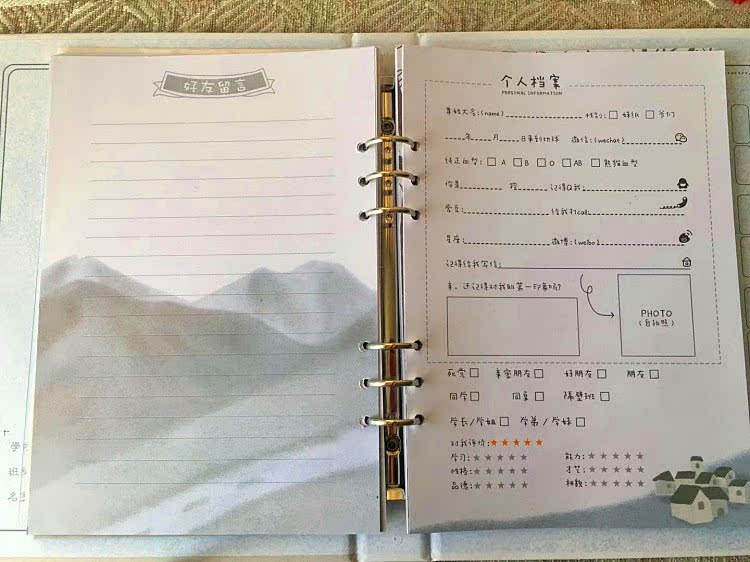 好友留言
个人档案
PERSONAL INFORMATION
尊姓大名:(name) 性别: 妹纸 爷们
年 月 日来到地球 微信:(wechat)
纯正血型: A B O AB 熊猫血型
你是 控 记得Q我:
堂 给我打call:
星座: 微博:(weibo)
记得给我写信:
亲,还记得对我的第一印象吗?
PHOTO
(自拍照)
死党 亲密朋友 好朋友 朋友
同学 同桌 隔壁班
学长/学姐 学弟/学妹
对我评价:
学习: 能力:
性格: 才艺:
品德: 相貌: